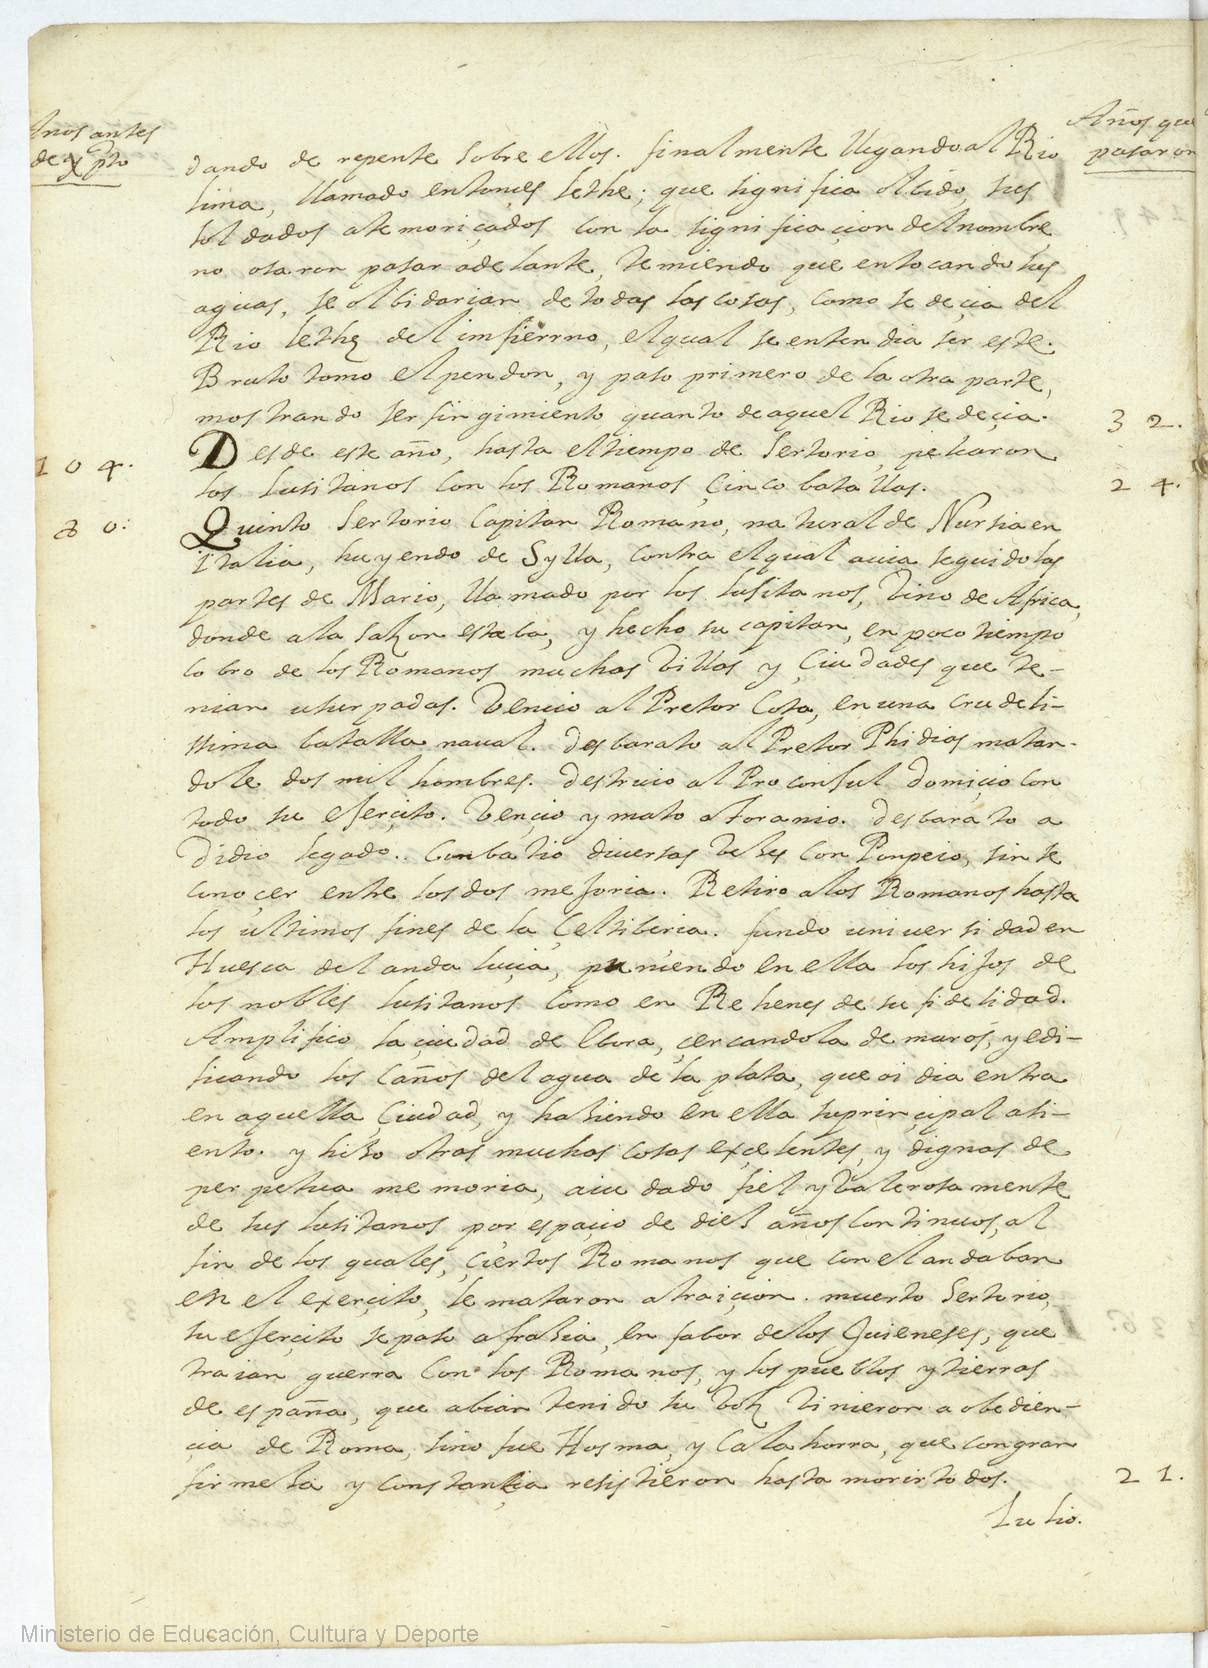 Años antes
de Xpto
Años que
pasaron
dando de repente sobre ellos. finalmente llegando al Rio
lima, llamado entonçes lethe; que significa olbido, sus
soldados atemoriçados con la significaçion del nombre
no osaron pasar adelante, temiendo que en tocando sus
aguas, se olbidarian de todas las cosas, como se deçia del
Rio lethe del imfierrno, el qual se entendia ser este.
Bruto tomo el pendon, y paso primero de la otra parte,
mostrando ser fingimiento quanto de aquel Rio se deçia.
32.
104.
Desde este año, hasta el tiempo de Sertorio, pelearon
los lusitanos con los Romanos çinco batallas.
24.
80.
Quinto Sertorio Capitan Romano, natural de Nursia en
Italia, huyendo de Sylla, contra el qual auia seguido las
partes de Mario, llamado por los lusitanos, vino de Africa,
donde a la sazon estaba, y hecho su capitan, en poco tiempo
cobro de los Romanos muchas villas y çiudades que te-
nian usurpadas. Vençio al Pretor Cota, en una crudeli-
ssima batalla naual. desbarato al Pretor Phidias matan-
dole dos mil hombres. destruio al Proconsul Domiçio con
todo su eserçito. Vençio y mato a Toranio. desbarato a
Didio legado. Conbatio diuersas vezes con Ponpeio, sin se
conoçer entre los dos mejoria. Retiro a los Romanos hasta
los ultimos fines de la Çeltiberia. fundo uniuersidad en
Huesca del andaluçia, puniendo en ella los hijos de
los nobles lusitanos como en Rehenes de su fidelidad.
Amplifico la çiudad de Ebora, çercandola de muros, y edi-
ficando los Caños del agua de la plata, que oi dia entra
en aquella Çiudad, y haziendo en ella su prinçipal asi-
ento. y hizo otras muchas cosas exçelentes, y dignas de
perpetua memoria, aiudado fiel y valerosamente
de sus lusitanos por espaçio de diez años continuos, al
fin de los quales, çiertos Romanos que con el andaban
en el exerçito, le mataron a traiçion. muerto Sertorio,
su eserçito se paso a frazia, en fabor de los Quieneses, que
traian guerra con los Romanos, y los pueblos y tierras
de españa, que abian tenido su voz vinieron a obedien-
çia de Roma, sino fue Hosma, y Calahorra, que con gran
firmeza y constançia resistieron hasta morir todos.
21.
Iulio.